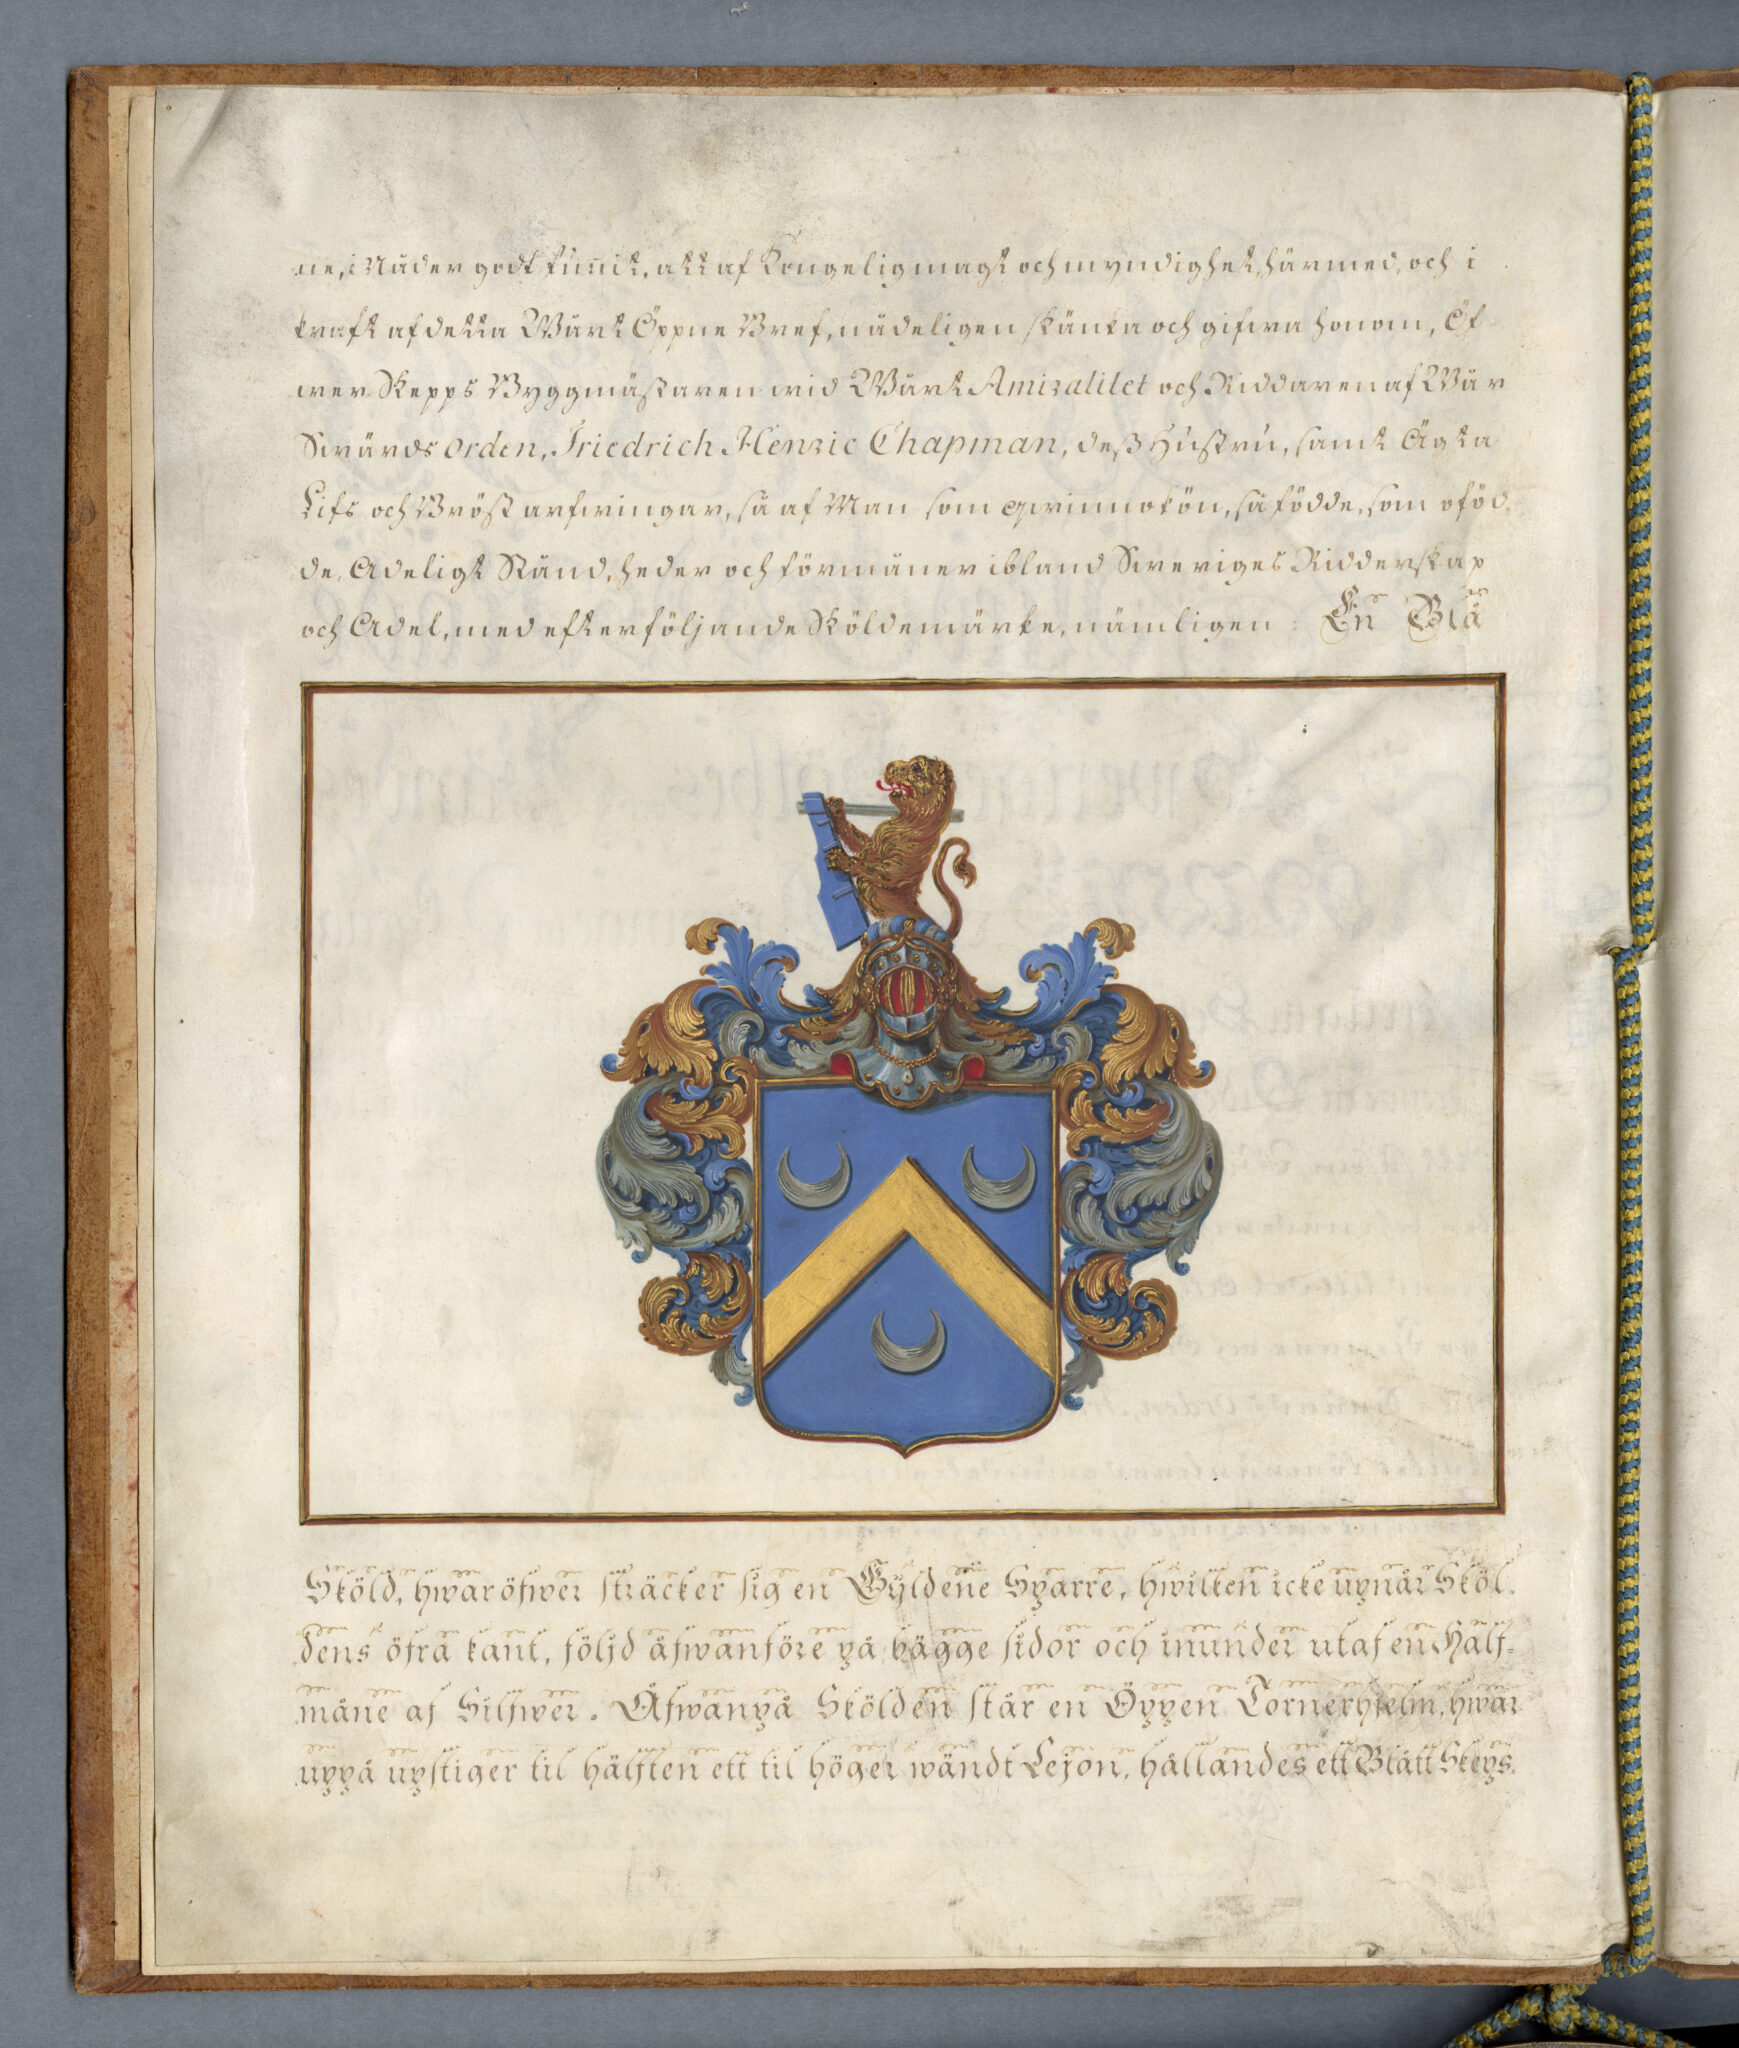 ne, i Nåder godt funnit, att af Kongelig magt och myndighet, härmed, och i
kraft af detta Wårt Öppne Bref, nådeligen skänka och gifwa honom, Öf
wer Skepps Byggmästaren wid Wårt Amiralitet och Riddaren af Wår
Swärds orden, Friedrich Henric Chapman, deß Hústrú, samt Ägta
Lifs och Bröst arfwingar, så af Man som qwinnokön, så födde, som oföd
de, Adeligt Stånd, heder och förmåner ibland Sweriges Ridderskap
och Adel, med efterföljande Sköldemärke, nämligen: En Blå
Sköld, hwaröfwer sträcker sig en Gyldene Sparre, hwilken icke upnår Sköl-
dens öfra kant, följd åfwanföre på bägge sidor och inunder utaf en Half-
måne af Silfwer. Åfwanpå Skölden står en Öppen Tornerhielm, hwar
uppå upstiger til hälften ett til höger wändt Lejon, hållandes ett Blått Skeps.